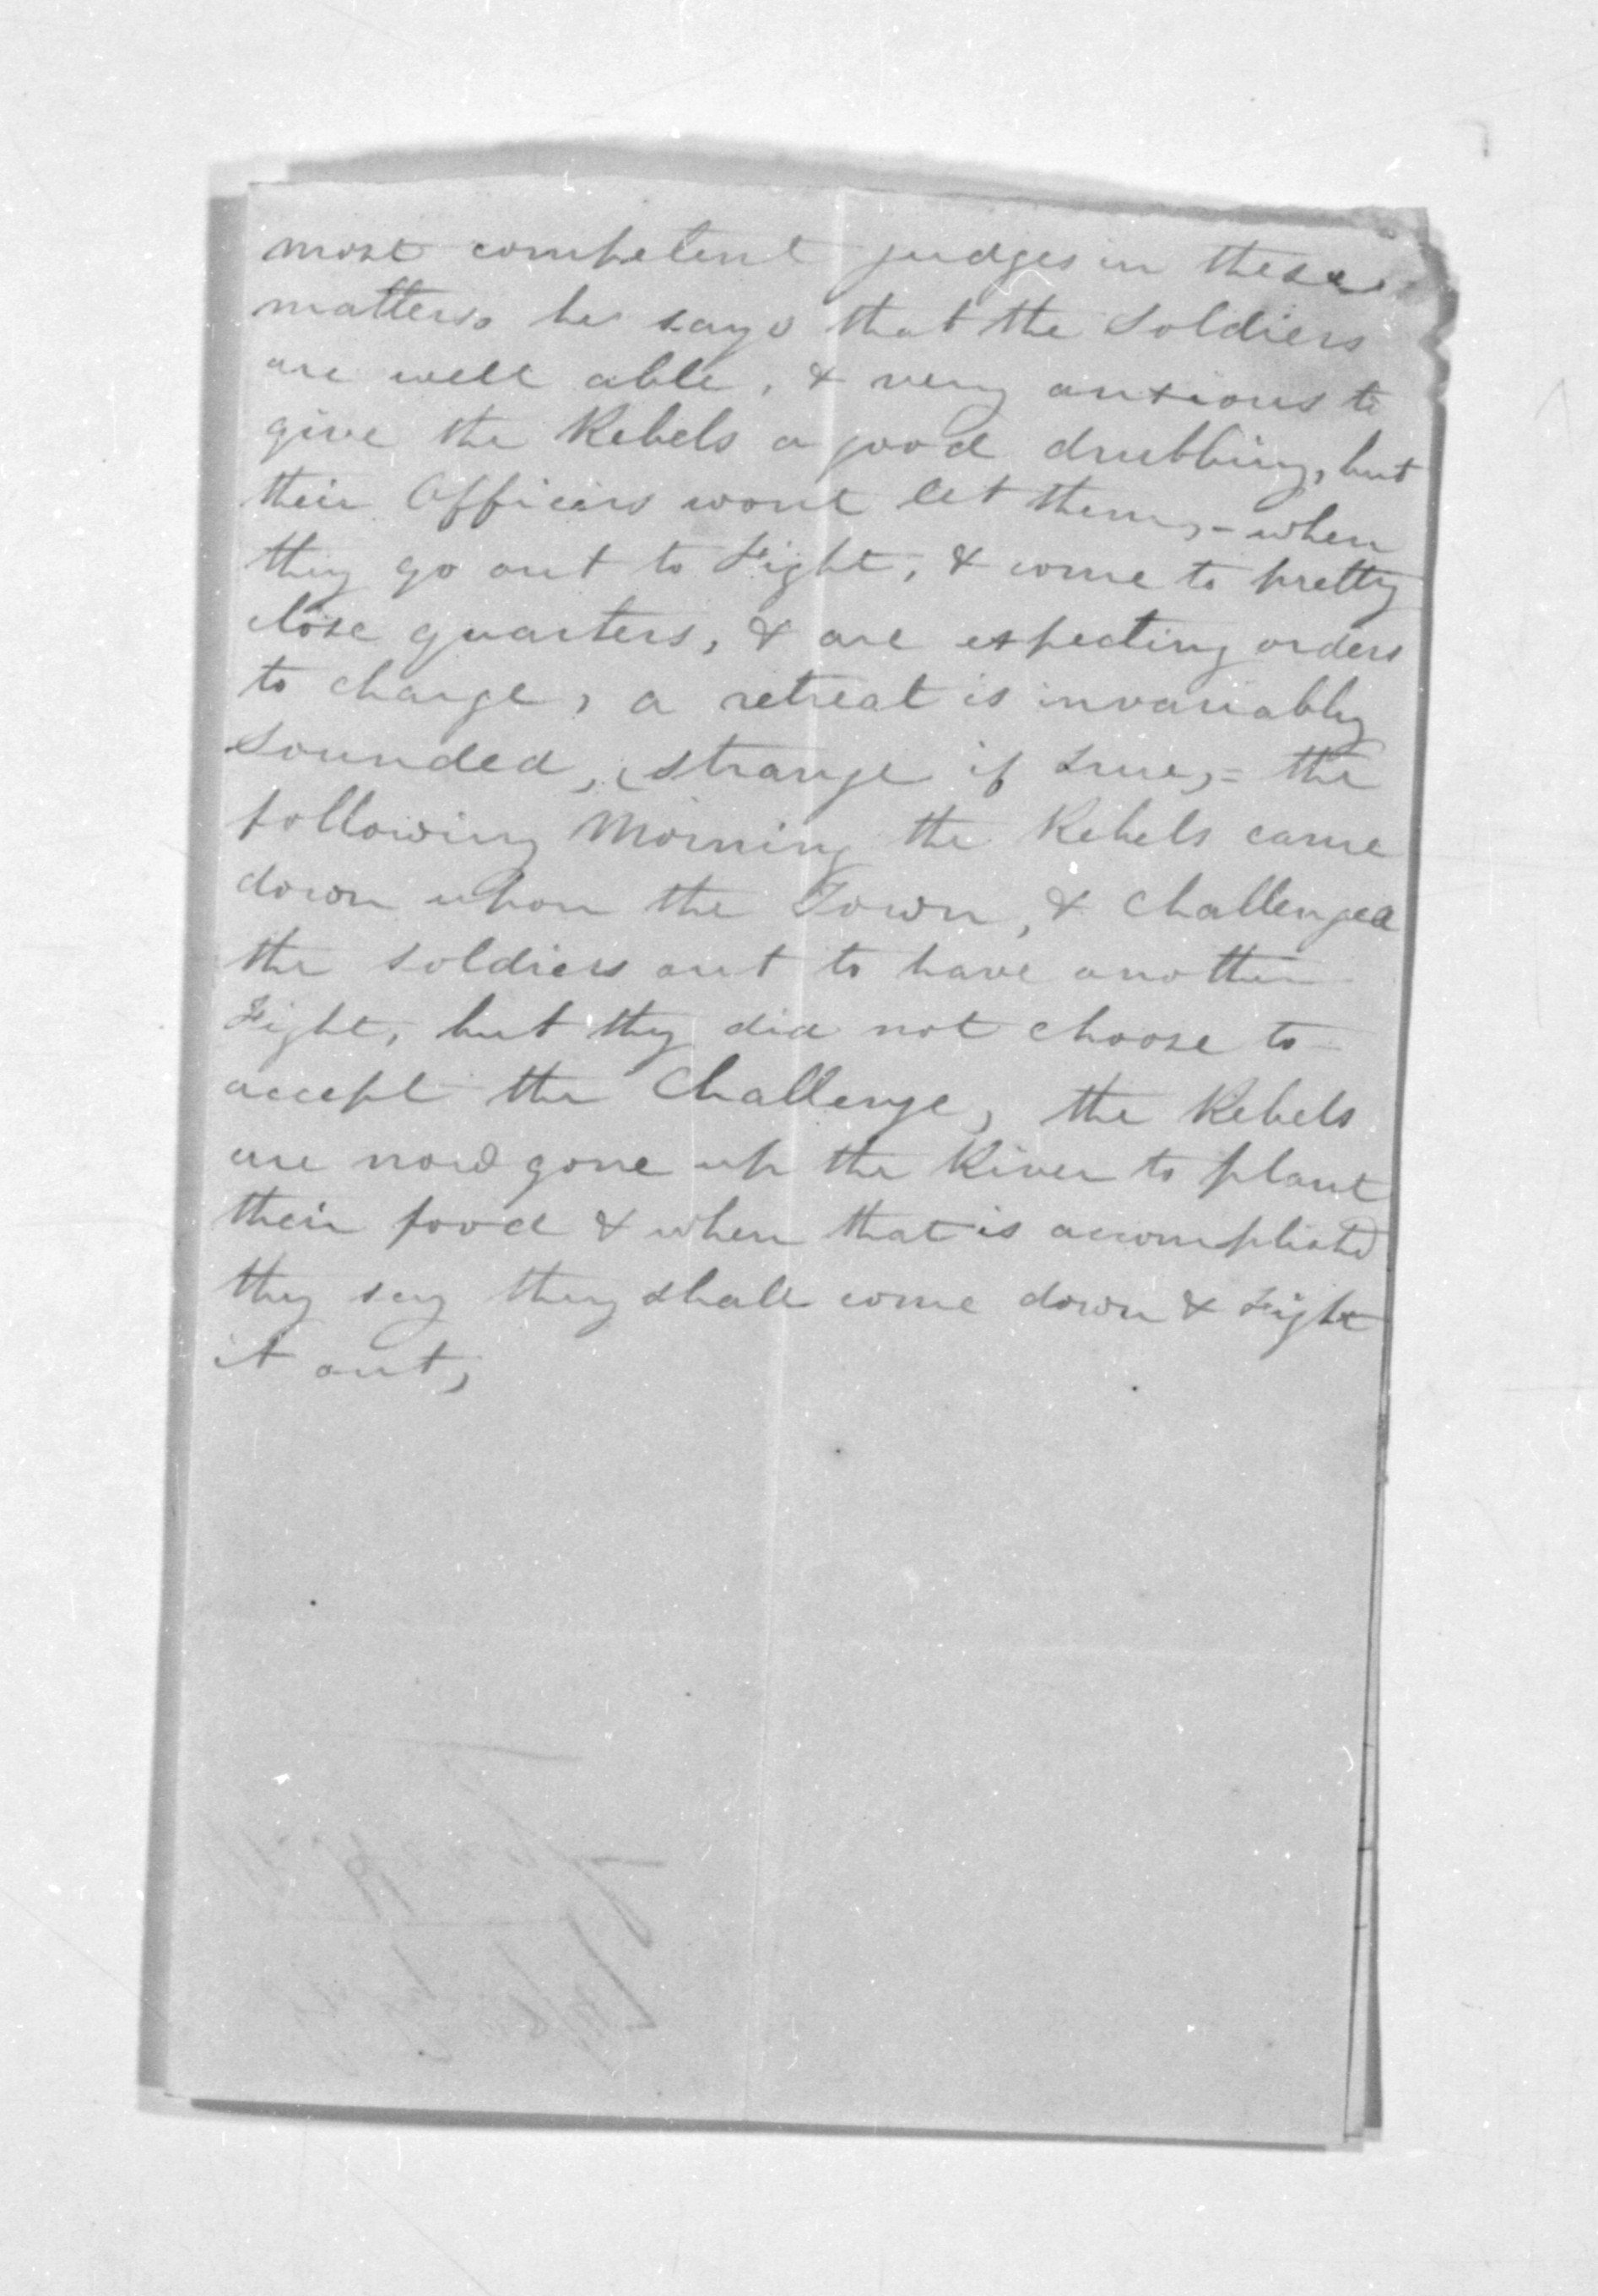 most competent judges in these
matters he says that the Soldiers
are well able, & very anxious to
give the Rebels a good drubbing, but
their Officers wont let them, - when
they go out to Fight, & come to pretty
close quarters, & are expecting orders
to charge, a retreat is invariably
sounded, (strange if true, = the
following Morning the Rebels came
down upon the Town, & challenged
the soldiers out to have another
Fight, but they did not choose to
accept the Challenge, the Rebels
are now gone up the River to plant
their food & when that is accomplished
they say they shall come down & Fight
it out,